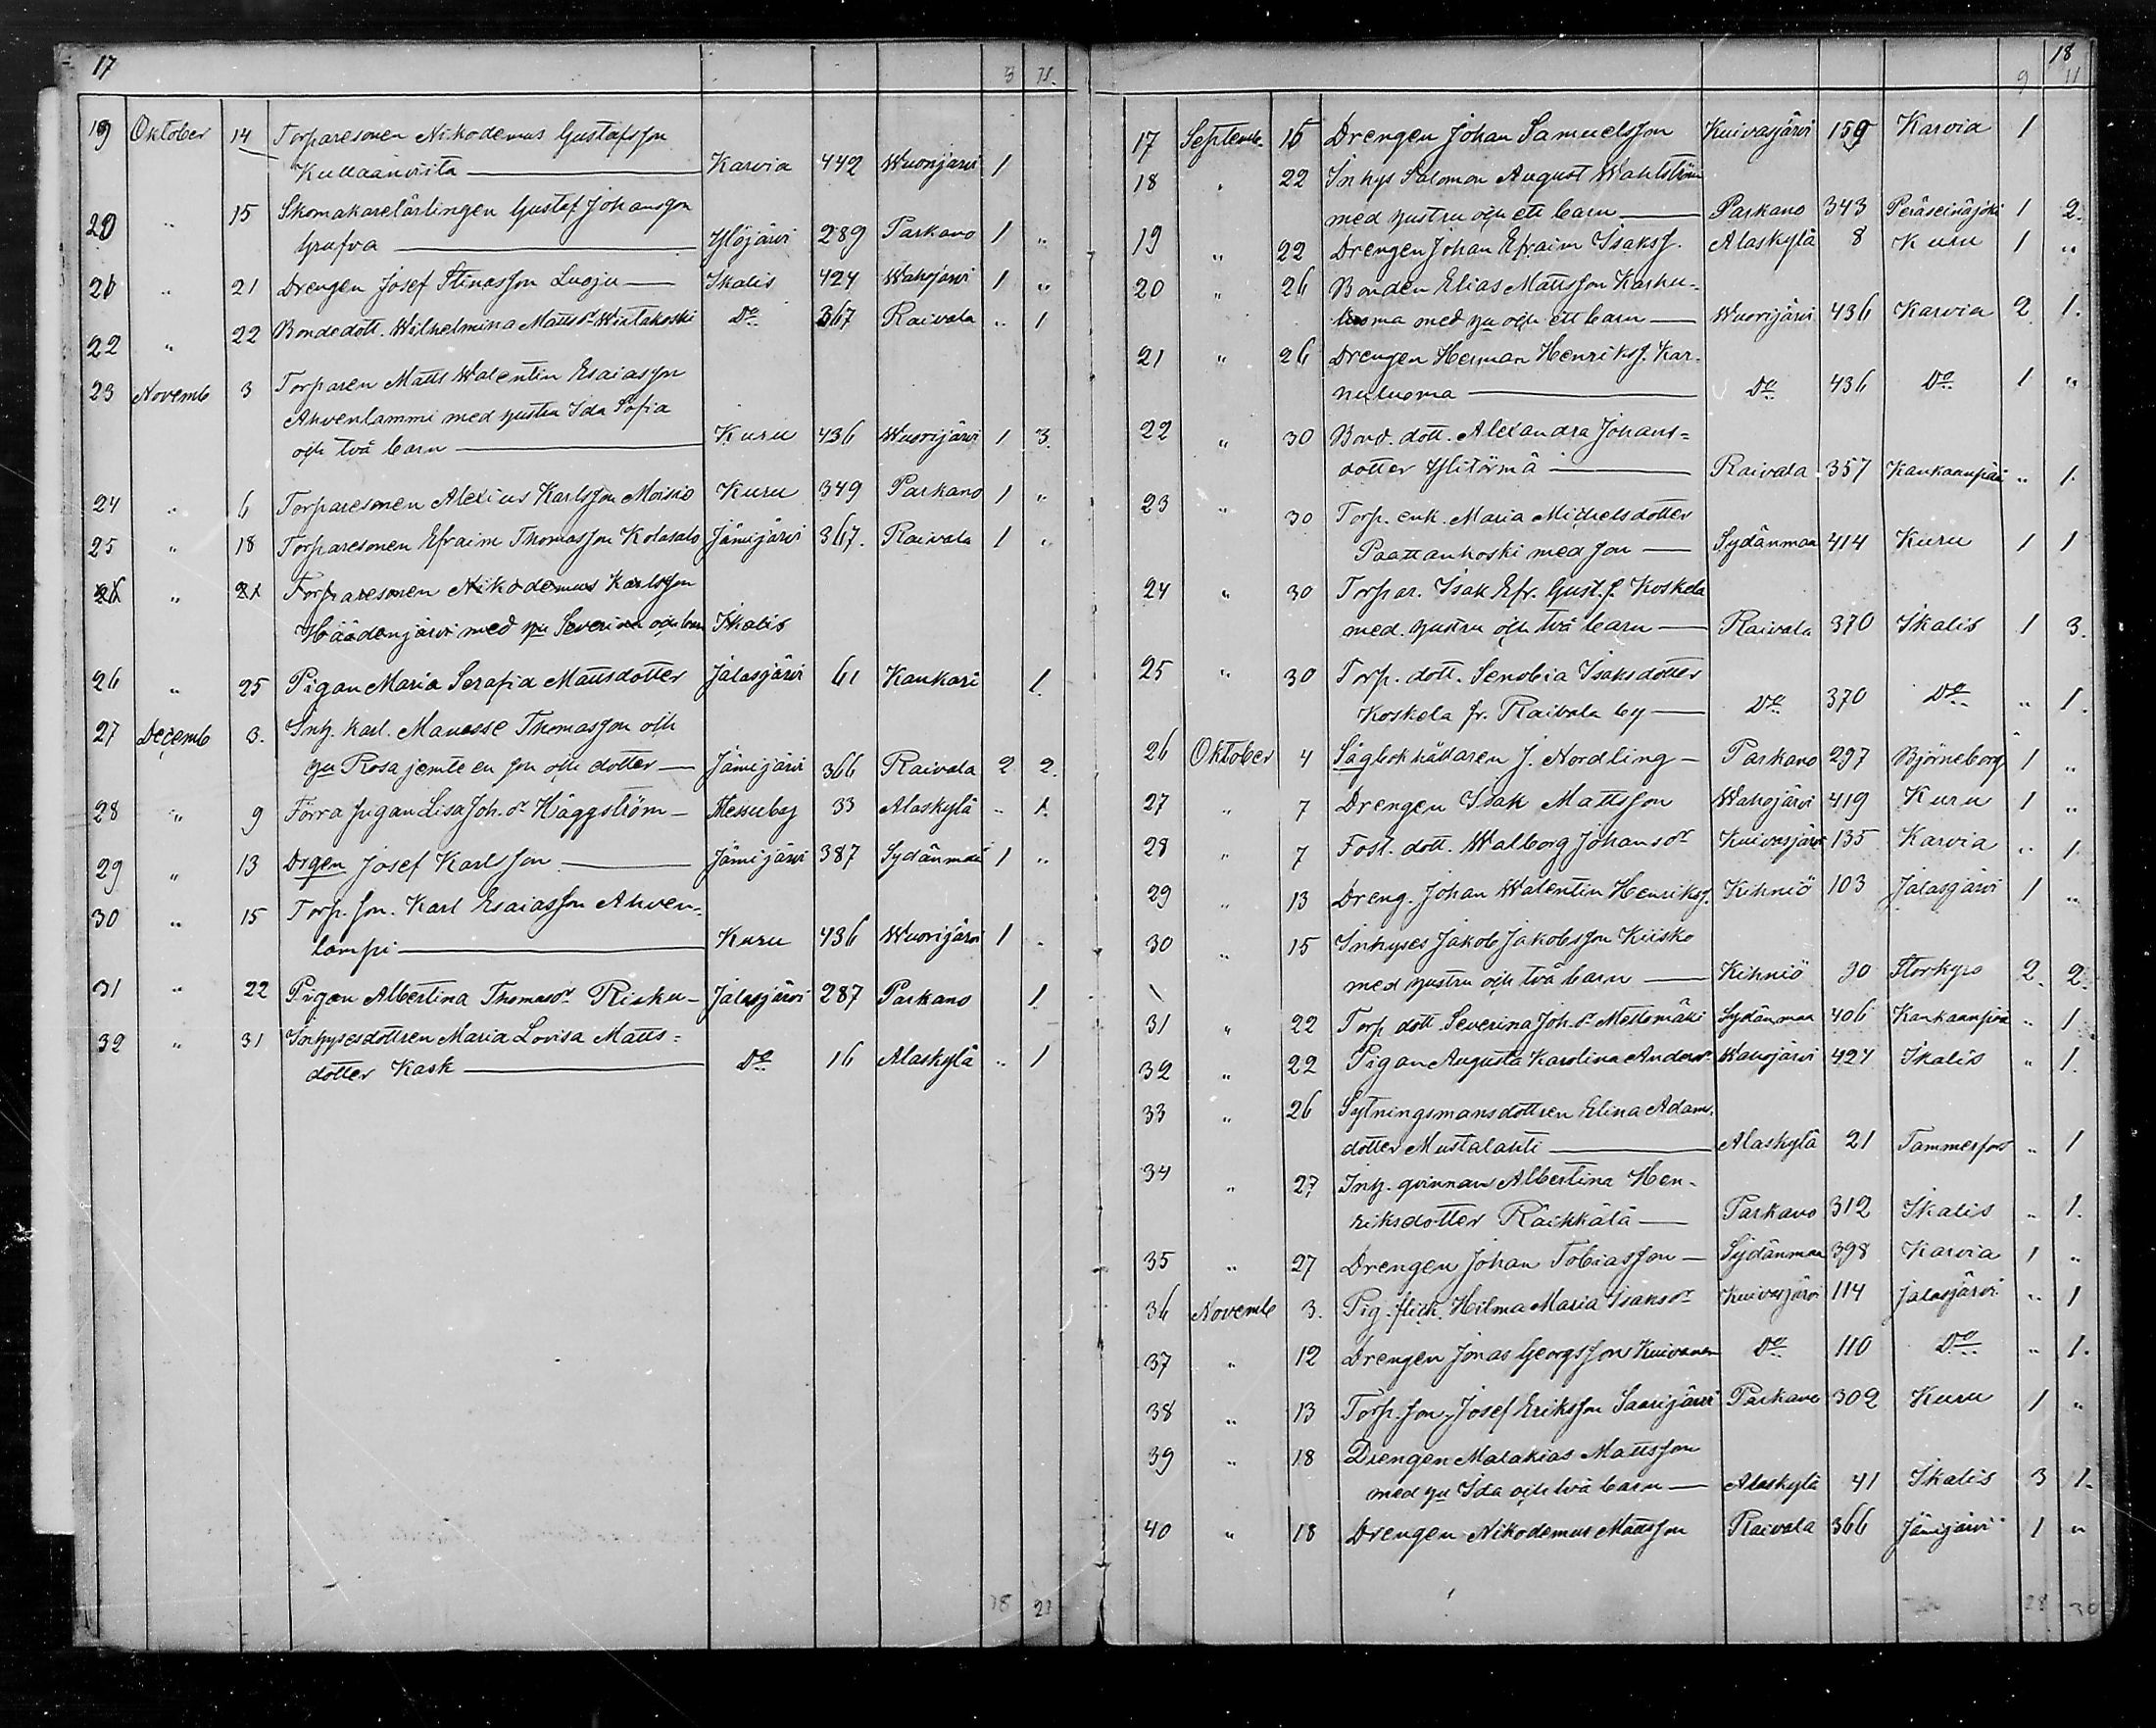 17
19 Oktober 14 Torparesonen Nikodemus Gustafsson
Kullaanviita Karvia 442 Wuorijärvi 1
20 " 15 Skomakarelärlingen Gustaf Johansson
Grufva Ylöjärvi 289 Parkano 1 "
21 " 21 Drengen Josef Stinasson Luoju Ikalis 424 Wahojärvi 1 "
22 " 22 Bondedott. Wilhelmina Mattsdr Do 367 Raivala " 1
23 Novemb 3 Torparen Matts Walentin Esaiasson
Ahvenlammi med hustru Ida Sofia
och två barn Kuru 436 Wuorijärvi 1 3.
24 " 6 Torparesonen Alexius Karlsson Moisio Kuru 349 Parkano 1 "
25 " 18 Torparesonen Efraim Thomasson Kolasalo Jämijärvi 367. Raivala 1 "
26 " 21 Torparesonen Nikodemus Karlsson
Häädenjärvi med hu Severina och barn Ikalis
26 " 25 Pigan Maria Serafia Mattsdotter Jalasjärvi 61 Kankari 1.
27 Decemb 3. Inh. karl. Manasse Thomasson och
hu Rosa jemte en son och dotter Jämijärvi 366 Raivala 2 2.
28 " 9 Förra pigan Lisa Joh. dr Häggström Messuby 33 Alaskylä " 1.
29 " 13 Drgen Josef Karlsson Jämijärvi 387 Sydänmaa 1 "
30 " 15 Torp. son. Karl Esaiasson Ahven-
lampi Kuru 436 Wuorijärvi 1 "
31 " 22 Pigan Albertina Thomasdr Risku Jalasjärvi 287 Parkano 1.
32 " 31 Inhysesdottren Maria Lovisa Matts=
dotter Kask Do 16 Alaskylä " 1
18
9 11
17 Septemb. 15 Drengen Johan Samuelsson Kuivasjärvi 159 Karvia 1
18 " 22 Inhys Salomon August Wahlström
med hustru och ett barn Parkano 343 Peräseinäjoki 1 2.
19 " 22 Drengen Johan Efraim Isakss. Alaskylä 8 Kuru 1 "
20 " 26 Bonden Elias Mattsson Karhu-
luoma med hu och ett barn Wuorijärvi 436 Karvia 2 1.
21 " 26 Drengen Herman Henrikss. Kar-
huluoma Do 436 Do 1 "
22 " 30 Bond. dott. Alexandra Johans=
dotter Ylitörmä Raivala 357 Kankaanpää " 1.
23 " 30 Torp. enk. Maria Michelsdotter
Paattankoski med son Sydänmaa 414 Kuru 1 1
24 " 30 Torpar. Isak Efr. Gust. s. Koskela
med hustru och två barn Raivala 370 Ikalis 1 3.
25 " 30 Torp. dott. Senobia Isaksdotter
Koskela fr. Raivala by Do 370 Do " 1.
26 Oktober 4 Sågbokhållaren J. Nordling Parkano 297 Björneborg 1 "
27 " 7 Drengen Isak Mattsson Wahojärvi 419 Kuru 1 "
28 " 7 Fost. dott. Walborg Johansdr Kuivasjärvi 135 Karvia " 1.
29 " 13 Dreng. Johan Walentin Henrikss. Kihniö 103 Jalasjärvi 1 "
30 " 15 Inhyses Jakob Jakobsson Kiisko
med hustru och två barn Kihniö 90 Storkyro 2. 2.
31 " 22 Torp dott Severina Joh. dr Mettomäki Sydänmaa 406 Kankaanpää " 1
32 " 22 Pigan Augusta Karolina Andersdr Wahojärvi 424 Ikalis " 1.
33 " 26 Sytningsmansdottren Elina Adams.
dotter Mustalahti Alaskylä 21 Tammerfors " 1
34 " 27 Inh. qvinnan Albertina Hen-
riksdotter Räikkälä Parkano 312 Ikalis " 1.
35 " 27 Drengen Johan Tobiasson Sydänmaa 398 Karvia 1 "
36 Novemb 3. Pig. flick. Hilma Maria Isaksdr Kuivasjärvi 114 Jalasjärvi " 1
37 " 12 Drengen Jonas Georgsson Kuivanen Do 110 Do " 1.
38 " 13 Torp. son. Josef Eriksson Saarijärvi Parkano 302 Kuru 1 "
39 " 18 Drengen Malakias Mattsson
med hu Ida och två barn Alaskylä 41 Ikalis 3 1.
40 " 18 Drengen Nikodemus Mattsson Raivala 366 Jämijärvi 1 "